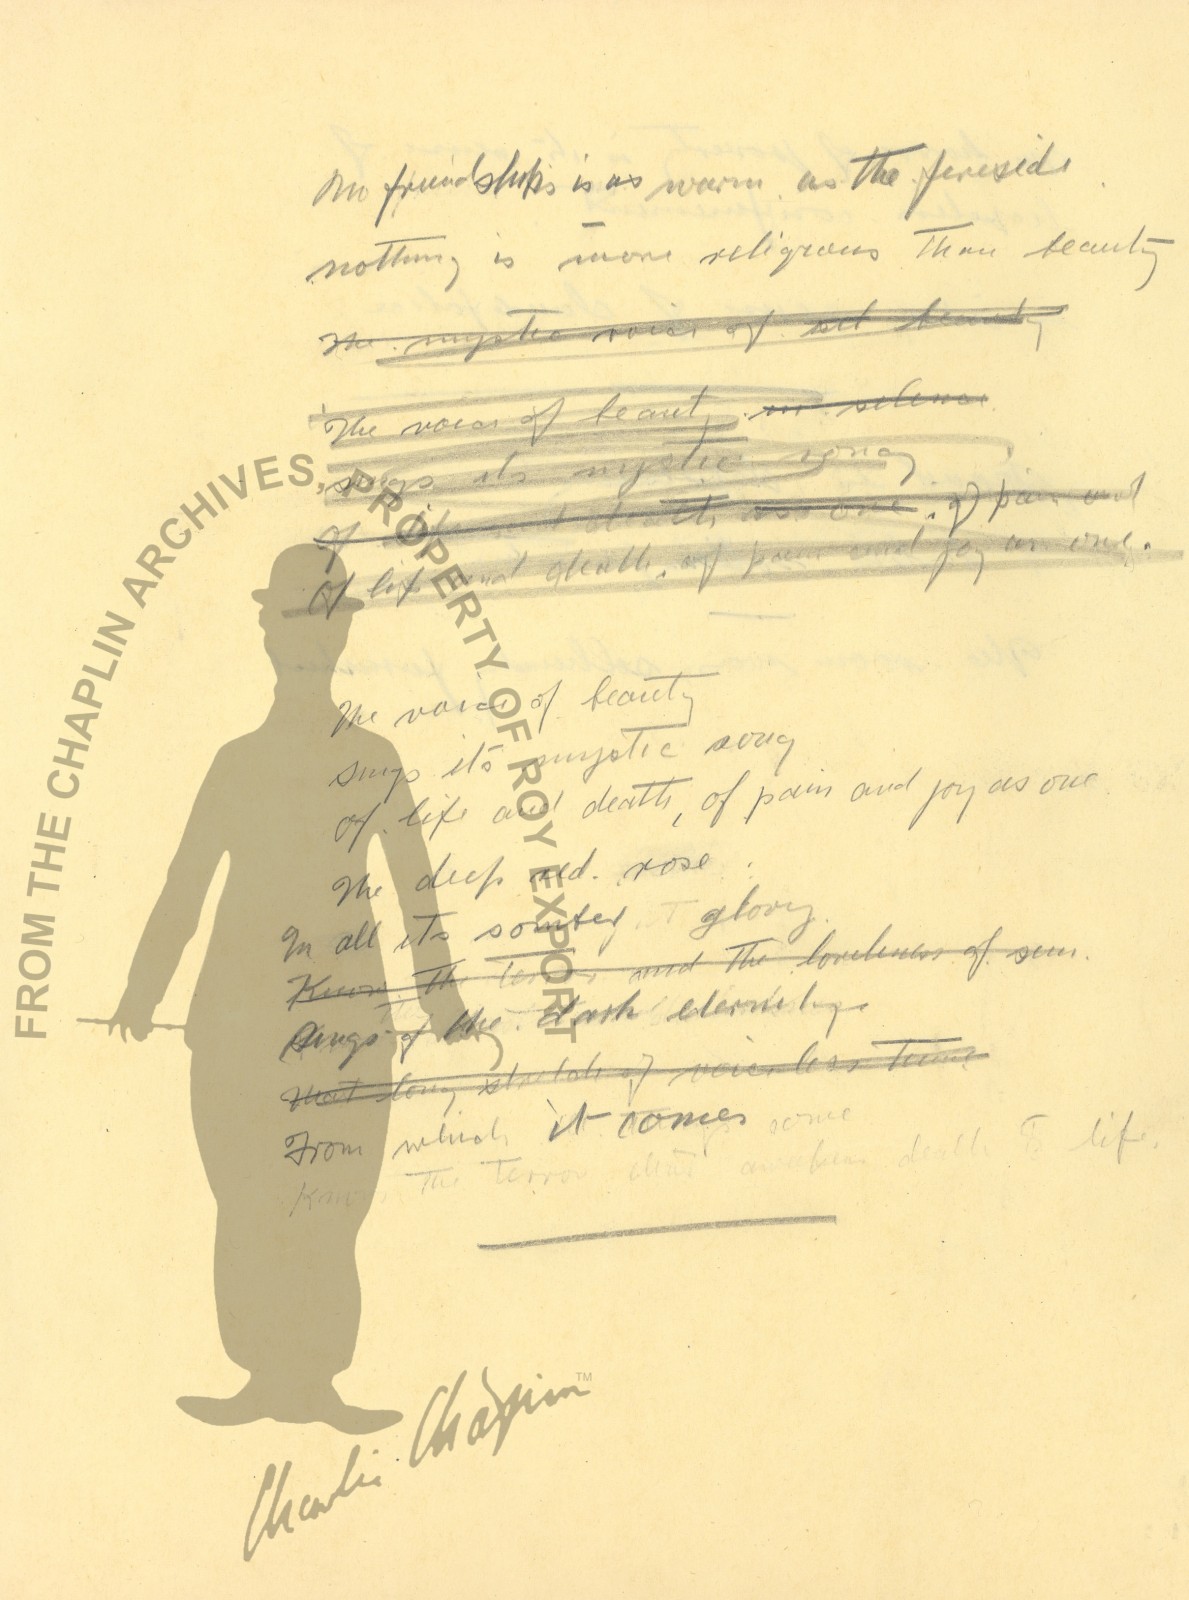 No friendship is as warm as the fireside
nothing is more religious than beauty
The mystic voice of beauty
The voice of beauty in silence
sings its mystic song
of life and death as one, of pain and
of life and death, of pain and joy as one.
The voice of beauty
sings its mystic song
of life and death, of pain and joy as one
The deep red rose
In all its somber glory.
Know the terror and the loveliness of
Sings of the dark eternity
That long stretch of voiceless time
From which it comes
Know the terror that death to life.
FROM THE CHAPLIN ARCHIVES, PROPERTY OF ROY EXPORT
Charlie Chaplin™